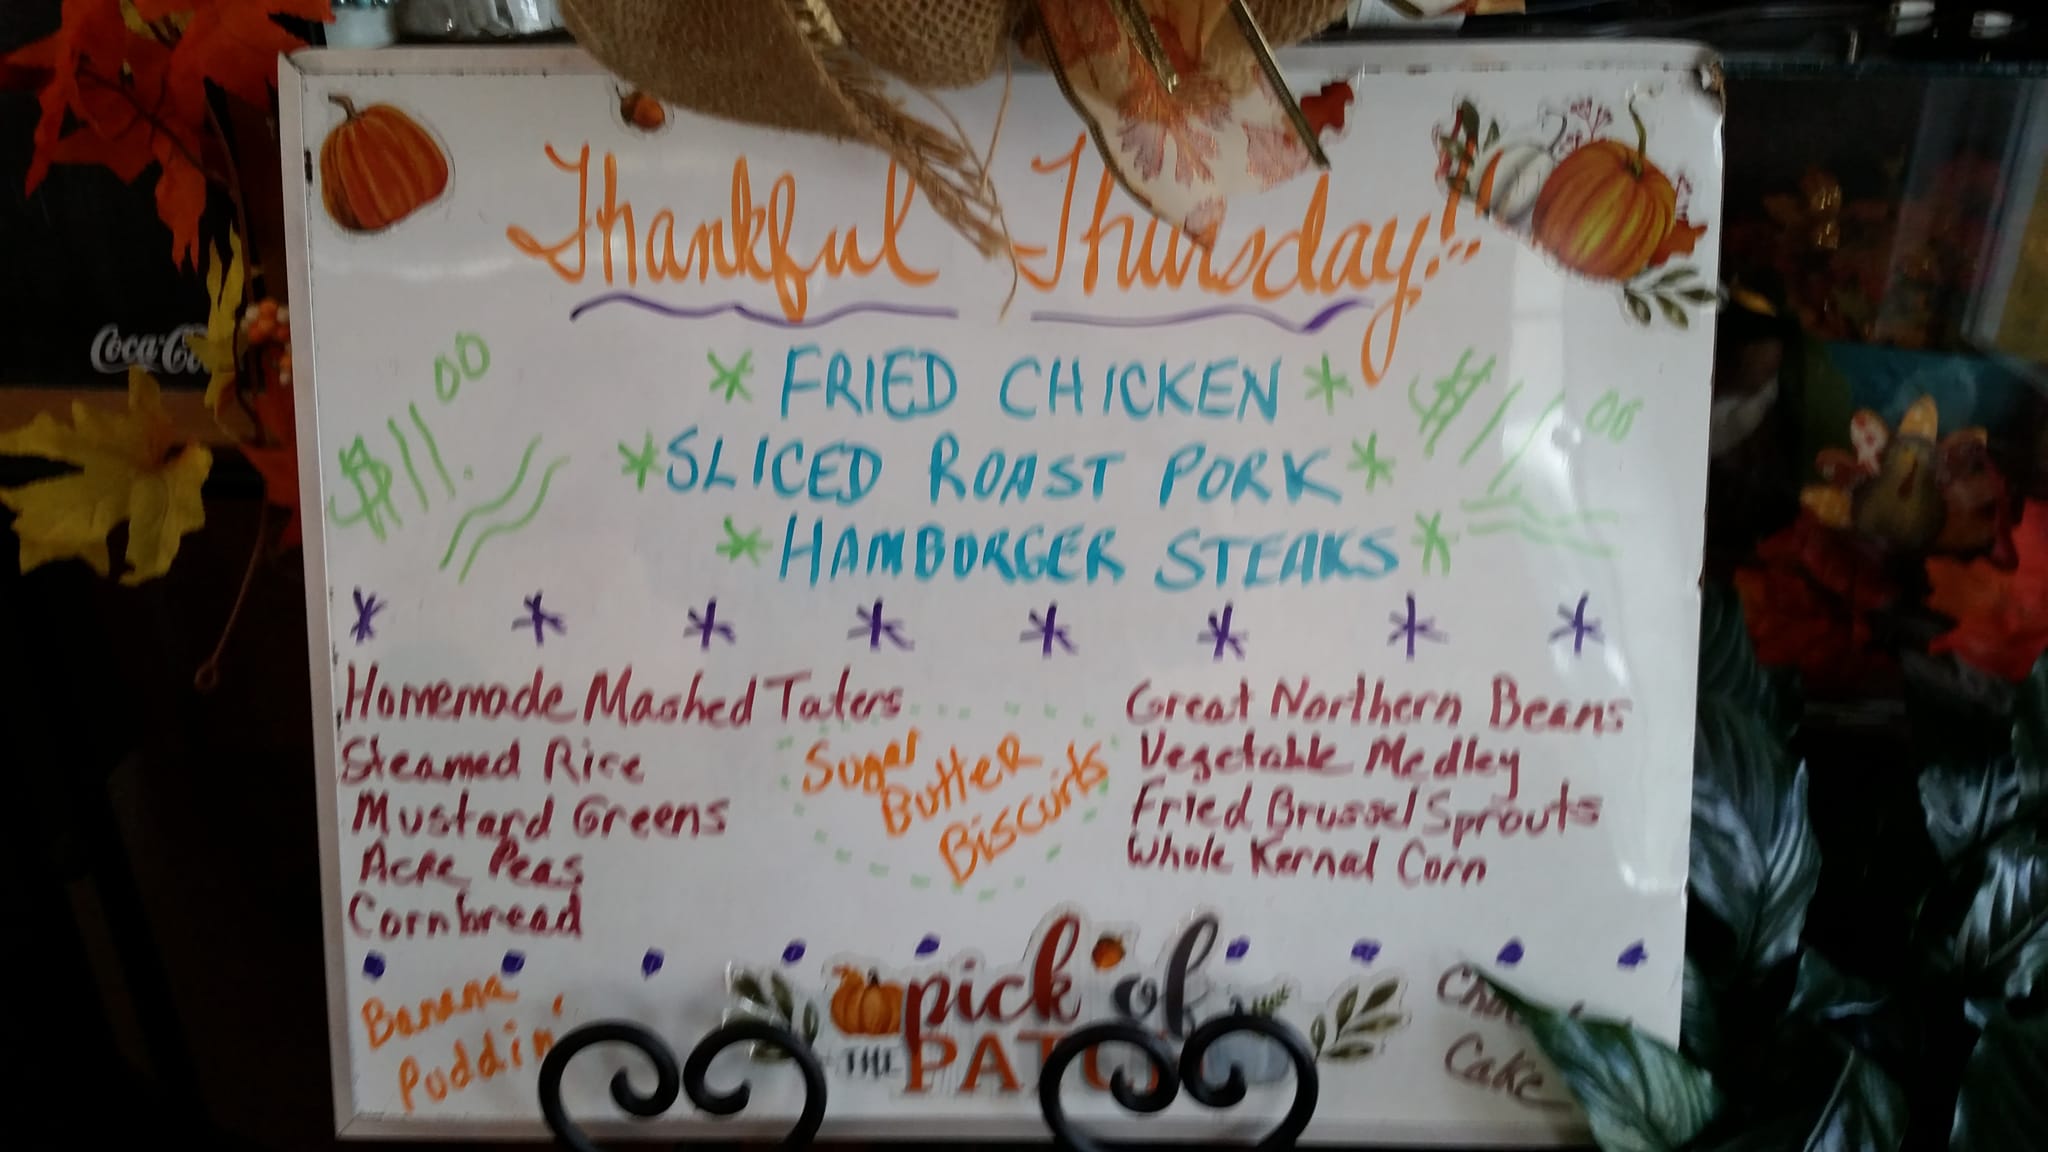 Coca-Co
Thankful Thursday!!
$11.00
* FRIED CHICKEN *
$11.00
*SLICED ROAST PORK*
*HAMBURGER STEAKS*
* * * * * * * *
Homemade Mashed Taters
Steamed Rice
Mustard Greens
Acre Peas
Cornbread
Sugar
Butter
Biscuits
Great Northern Beans
Vegetable Medley
Fried Brussel Sprouts
Whole Kernal Corn
Banana
Puddin'
pick of
THE PATCH
Cake